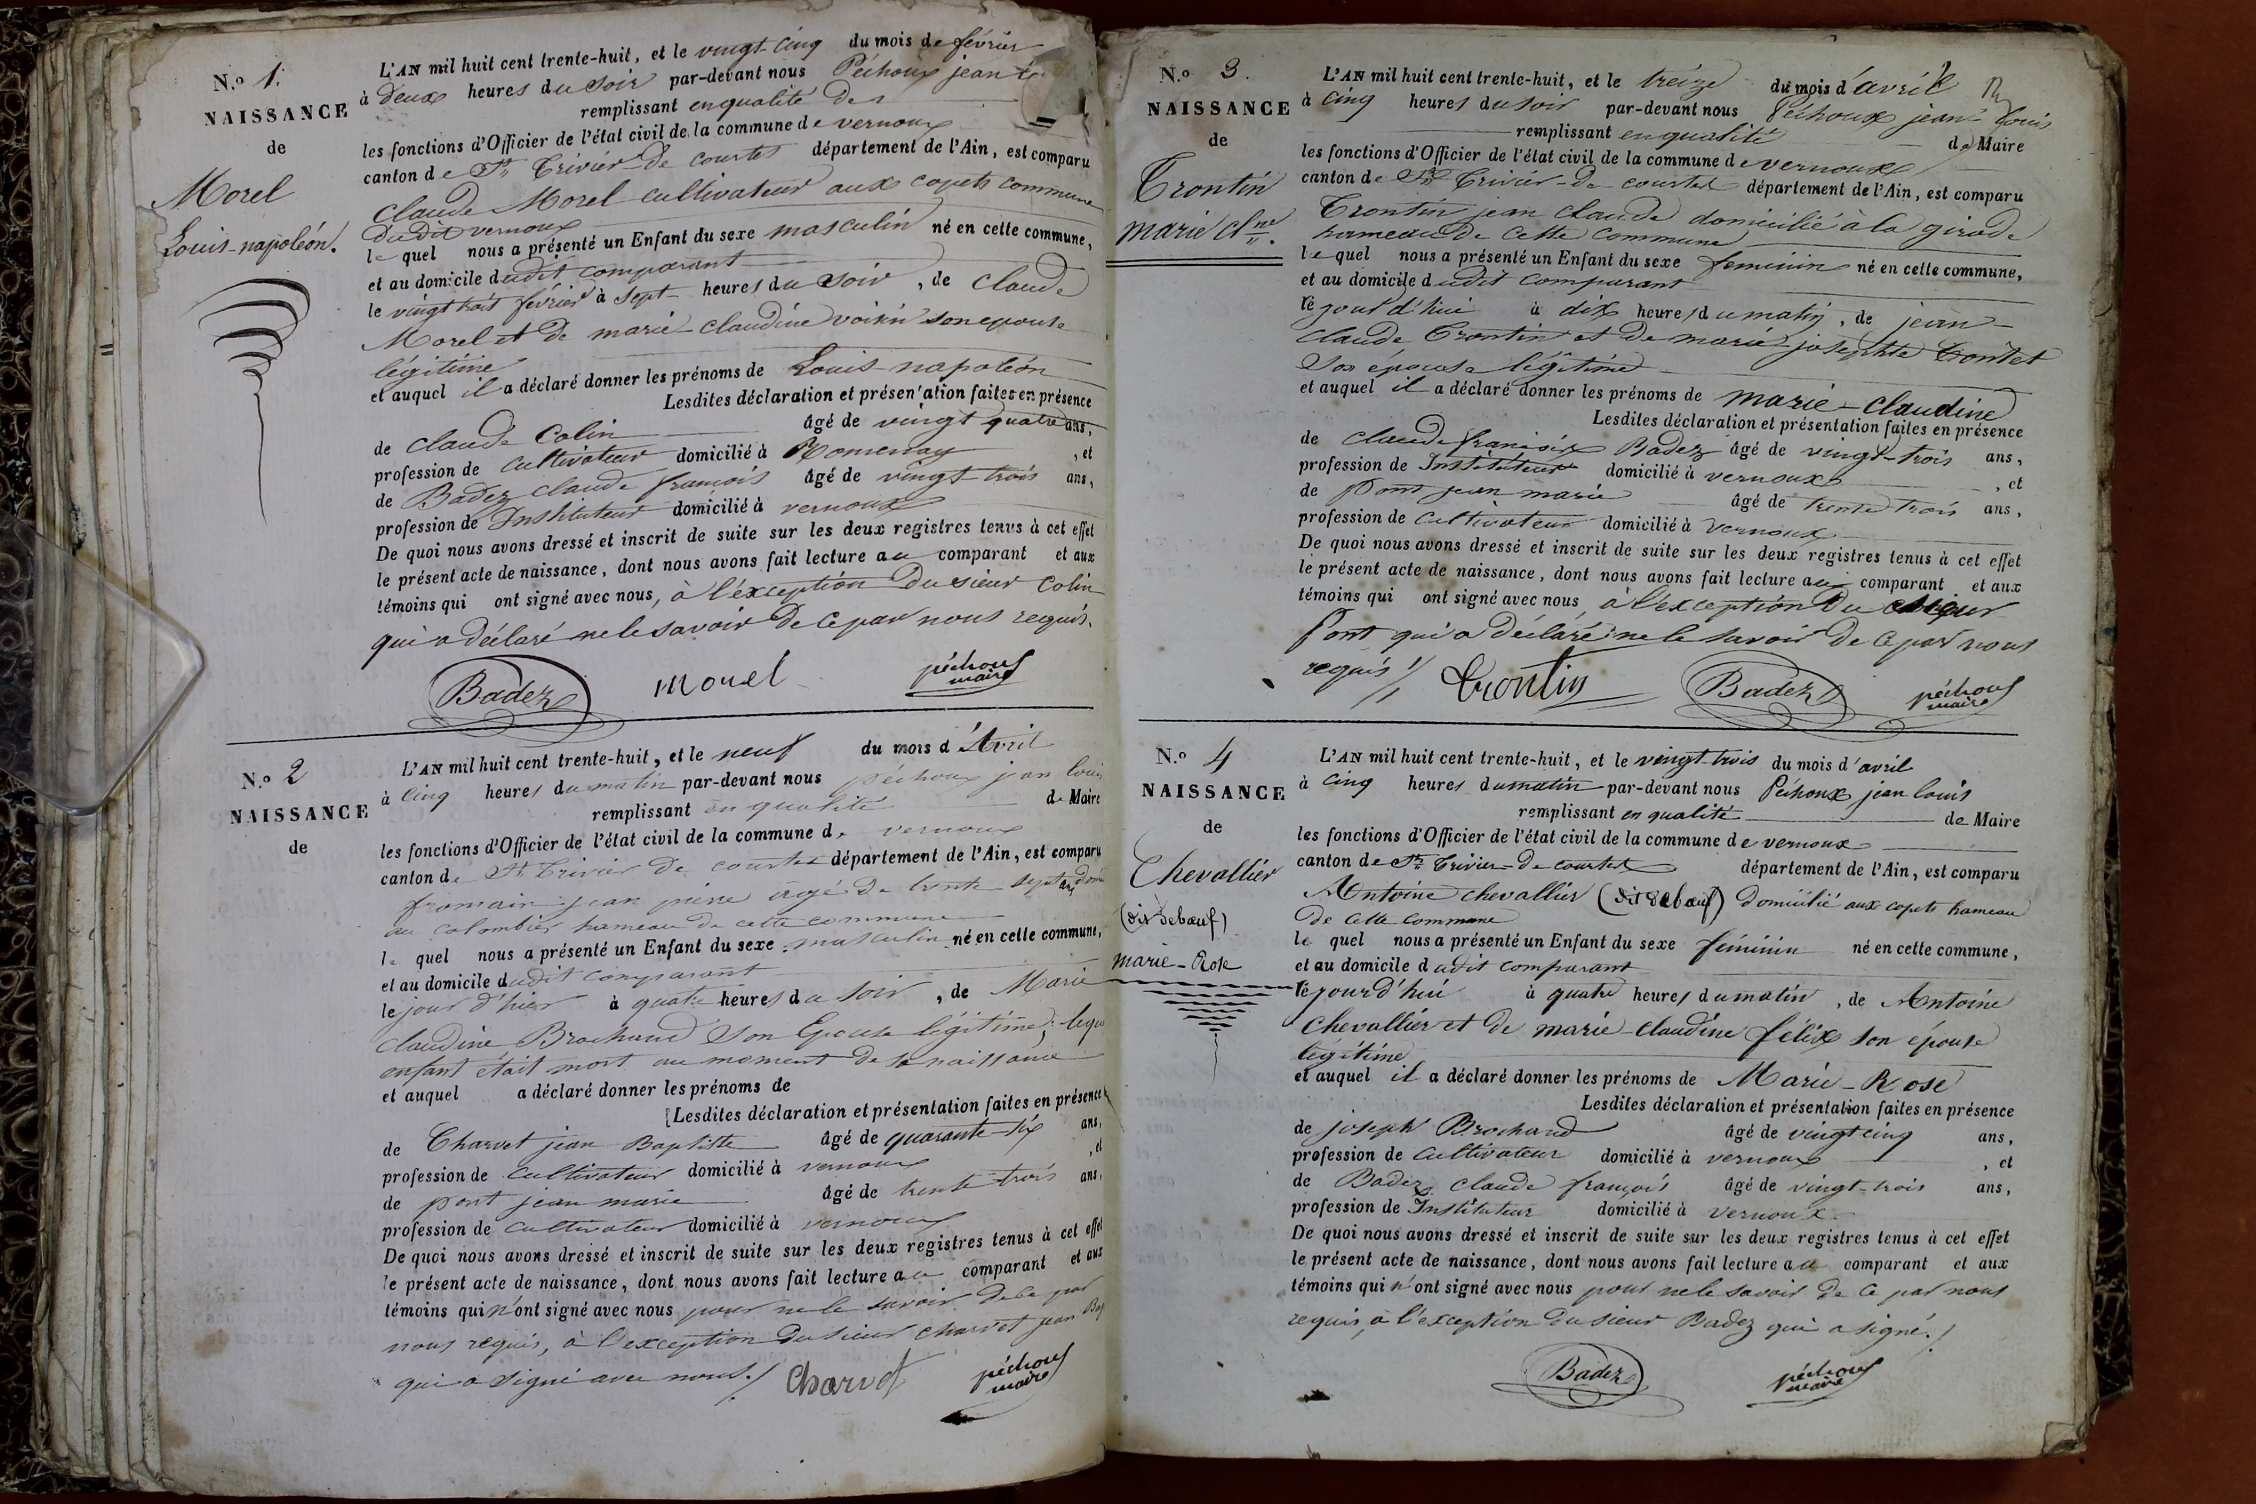 N.º 1.
NAISSANCE
de
Morel
Louis-napoléon.
L'AN mil huit cent trente-huit, et le vingt-cinq du mois de février
à deux heures du soir par-devant nous Péchoux jean
remplissant en qualité de
les fonctions d'Officier de l'état civil de la commune de vernoux
canton de St Trivier-de courtes département de l'Ain, est comparu
claude Morel cultivateur aux copets commune
dudit vernoux
le quel nous a présenté un Enfant du sexe masculin né en cette commune,
et au domicile dudit comparant
le vingt février à sept heures du soir, de claude
Morel et de marie-claudine voisin son epouse
légitime
et auquel il a déclaré donner les prénoms de Louis-napoléon
Lesdites déclaration et présentation faites en présence
de claude Colin âgé de vingt quatre ans,
profession de cultivateur domicilié à Romenay, et
de Badez claude françois âgé de vingt trois ans,
profession de Instituteur domicilié à vernoux
De quoi nous avons dressé et inscrit de suite sur les deux registres tenus à cet effet
le présent acte de naissance, dont nous avons fait lecture au comparant et aux
témoins qui ont signé avec nous, à l'éxception du sieur Colin
qui a déclaré ne le savoir de ce par nous requis.
Badez morel péchoux
maire
N.º 2
NAISSANCE
de
L'AN mil huit cent trente-huit, et le neuf du mois d'Avril
à cinq heures du matin par-devant nous péchoux jean louis
remplissant en qualité de Maire
les fonctions d'Officier de l'état civil de la commune de vernoux
canton de St Trivier de courtes département de l'Ain, est comparu
fromain jean pierre agé de trente sept ans
au colombier hameau de cette commune
le quel nous a présenté un Enfant du sexe masculin né en cette commune,
et au domicile dudit comparant
le jour d'hier à quatre heures du soir, de Marie
claudine Brochand son Epouse légitime; lequel
enfant était mort au moment de sa naissance
et auquel a déclaré donner les prénoms de
Lesdites déclaration et présentation faites en présence
de Charvet jean Baptiste âgé de quarante six ans,
profession de cultivateur domicilié à vernoux, et
de pont jean marie âgé de trente trois ans,
profession de cultivateur domicilié à vernoux
De quoi nous avons dressé et inscrit de suite sur les deux registres tenus à cet effet
le présent acte de naissance, dont nous avons fait lecture au comparant et aux
témoins qui n'ont signé avec nous pour ne le savoir de ce par
nous requis, à l'exception du sieur charvet jean Bap
qui a signé avec nous./ Charvet péchoux
maire
N.º 3.
NAISSANCE
de
Trontin
marie Clne.
L'AN mil huit cent trente-huit, et le treize du mois d'avril
à cinq heures du soir par-devant nous Péchoux jean-Louis
remplissant en qualité de Maire
les fonctions d'Officier de l'état civil de la commune de vernoux
canton de St Trivier-de-courtes département de l'Ain, est comparu
Trontin jean claude domicilié à la girade
hameau de cette commune
le quel nous a présenté un Enfant du sexe feminin né en cette commune,
et au domicile dudit comparant
le jourd'hui à dix heures du matin, de jean-
claude Trontin et de marie-josephte Contet
son épouse légitime
et auquel il a déclaré donner les prénoms de marie-claudine
Lesdites déclaration et présentation faites en présence
de claude françois Badez âgé de vingt-trois ans,
profession de Instituteur domicilié à vernoux, et
de pont jean marie âgé de trente trois ans,
profession de cultivateur domicilié à vernoux
De quoi nous avons dressé et inscrit de suite sur les deux registres tenus à cet effet
le présent acte de naissance, dont nous avons fait lecture au comparant et aux
témoins qui ont signé avec nous, à l'exception du
Pont qui a déclaré ne le savoir de ce par nous
requis ./ Trontin Badez péchoux
maire
N.º 4
NAISSANCE
de
Chevallier
(dit debœuf)
marie-Rose
L'AN mil huit cent trente-huit, et le vingt trois du mois d'avril
à cinq heures du matin par-devant nous Péchoux jean Louis
remplissant en qualité de Maire
les fonctions d'Officier de l'état civil de la commune de vernoux
canton de St Trivier-de-courtes département de l'Ain, est comparu
Antoine chevallier (dit debœuf) domicilié aux copets hameau
de cette commune
le quel nous a présenté un Enfant du sexe féminin né en cette commune,
et au domicile dudit comparant
le jourd'hui à quatre heures du matin, de Antoine
chevallier et de marie-claudine félix son épouse
légitime
et auquel il a déclaré donner les prénoms de Marie-Rose
Lesdites déclaration et présentation faites en présence
de joseph Brochand âgé de vingt cinq ans,
profession de cultivateur domicilié à vernoux, et
de Badez claude françois âgé de vingt-trois ans,
profession de Instituteur domicilié à vernoux
De quoi nous avons dressé et inscrit de suite sur les deux registres tenus à cet effet
le présent acte de naissance, dont nous avons fait lecture au comparant et aux
témoins qui n'ont signé avec nous pour ne le savoir de ce par nous
requis, à l'éxception du sieur Badez qui a signé./
Badez péchoux
maire